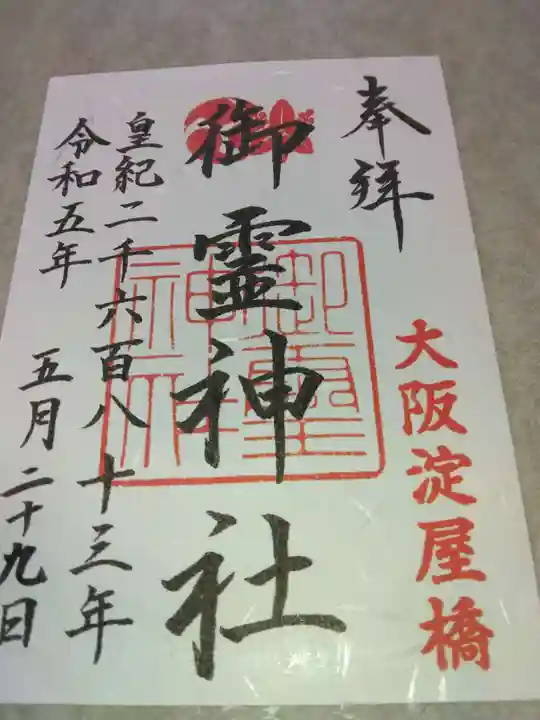 奉拝
大阪淀屋橋
御霊神社
皇紀二千六百八十三年
令和五年 五月二十九日
御霊神社